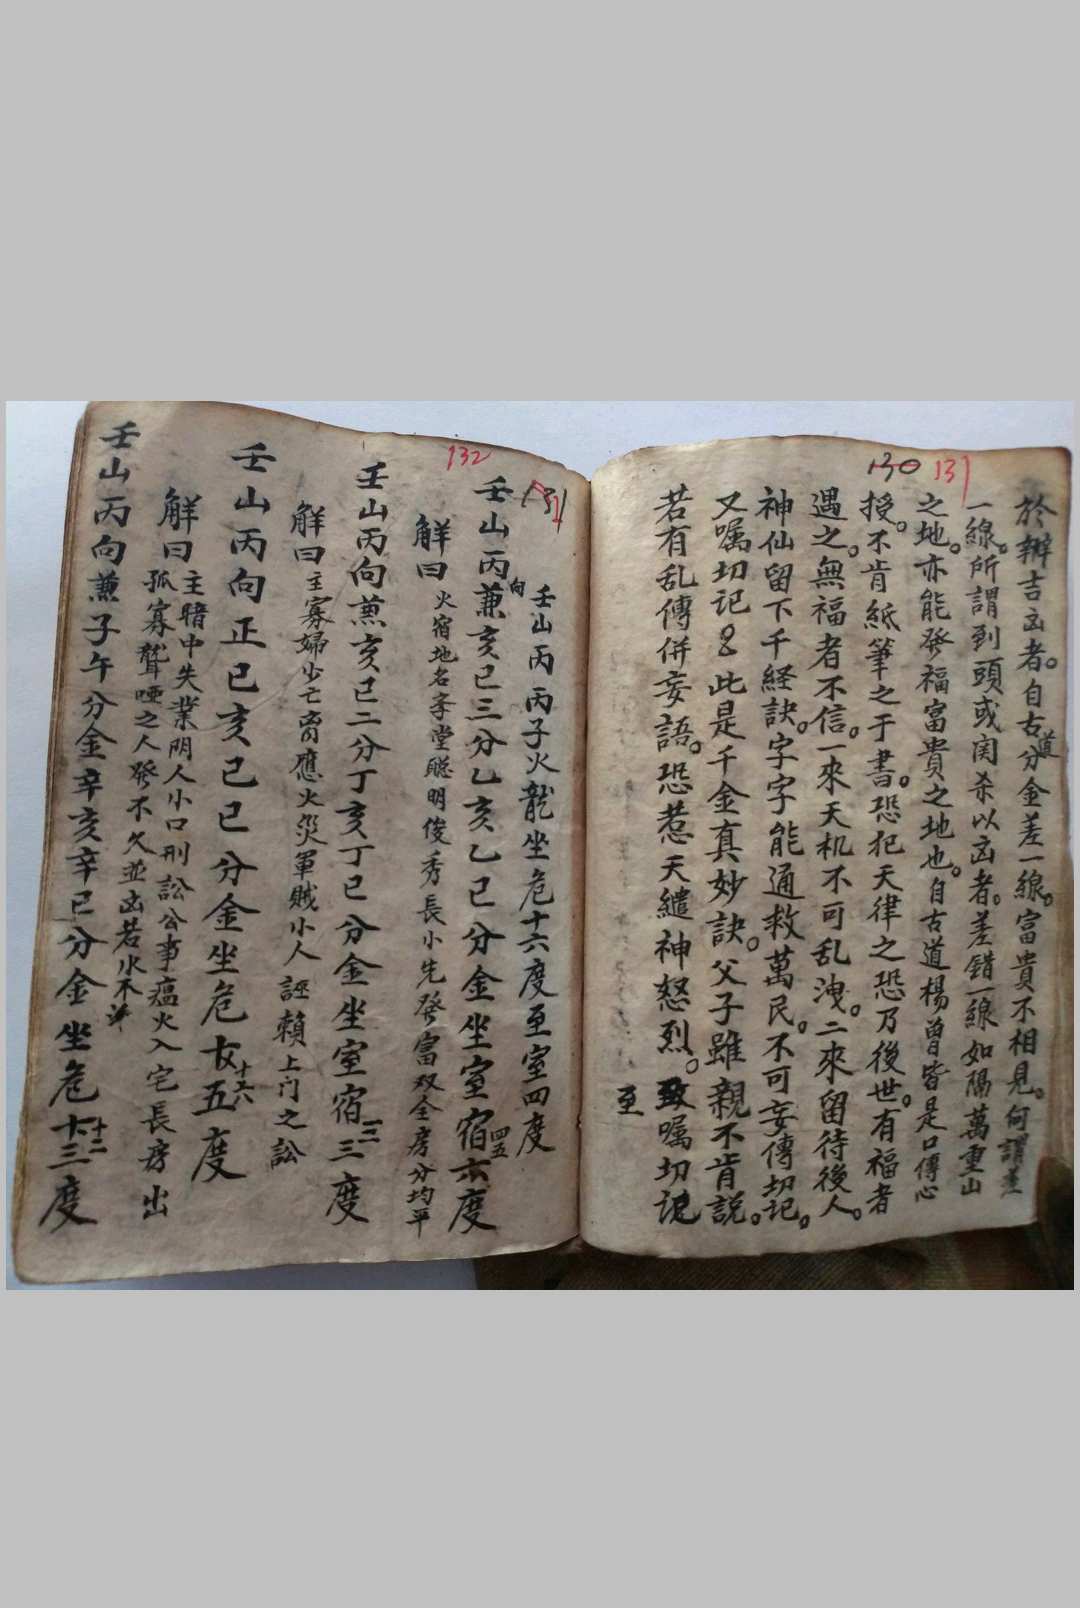 130 131
於辦吉凶者。自古道分金差一線。富貴不相見。何謂差
一線。所謂到頭或関杀以凶者。差錯一線如隔萬重山
之地。亦能發福富貴之地也。自古道楊曾皆是口傳心
授。不肯紙筆之于書。恐犯天律之恐乃後世。有福者
遇之。無福者不信。一來天机不可乱洩。二來留待後人。
神仙留下千経訣。字字能通救萬民。不可妄傳切記。
又嘱切記。此是千金真妙訣。父子雖親不肯説。
若有乱傳併妄語。恐惹天譴神怒烈。致嘱切記
至
131
132
壬山丙 丙子火龍坐危十六度至室四度
壬山丙向兼亥巳三分乙亥乙巳分金坐室宿六四五度
解曰 火宿地名字堂聪明俊秀長小先發富双全房分均平
壬山丙向兼亥巳二分丁亥丁巳分金坐室宿三二度
解曰 主寡婦少亡 應火災軍賊小人誣賴上门之訟
壬山丙向正己亥己巳分金坐危十五十六度
解曰 主暗中失業阴人小口刑訟公事瘟火入宅長房出
孤寡聾啞之人發不久並凶若水不
壬山丙向兼子午分金辛亥辛巳分金坐危十三十二度